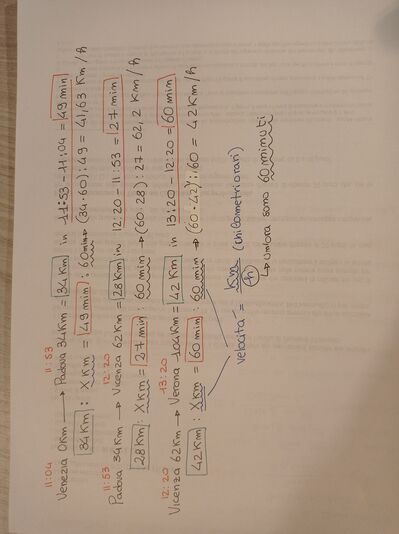 11:04 11:53
Venezia 0Km → Padova 34Km = 34Km in 11:53 - 11:04 = 49 min
34Km : X Km = 49 min : 60 min → (34·60) : 49 = 41,63 Km/h
11:53 12:20
Padova 34Km → Vicenza 62Km = 28Km in 12:20 - 11:53 = 27 min
28Km : X Km = 27 min : 60 min → (60·28) : 27 = 62,2 Km/h
12:20 13:20
Vicenza 62Km → Verona 104Km = 42Km in 13:20 - 12:20 = 60 min
42Km : X Km = 60 min : 60 min → (60·42) : 60 = 42 Km/h
velocità = Km/h (chilometri orari)
↳ un'ora sono 60 minuti